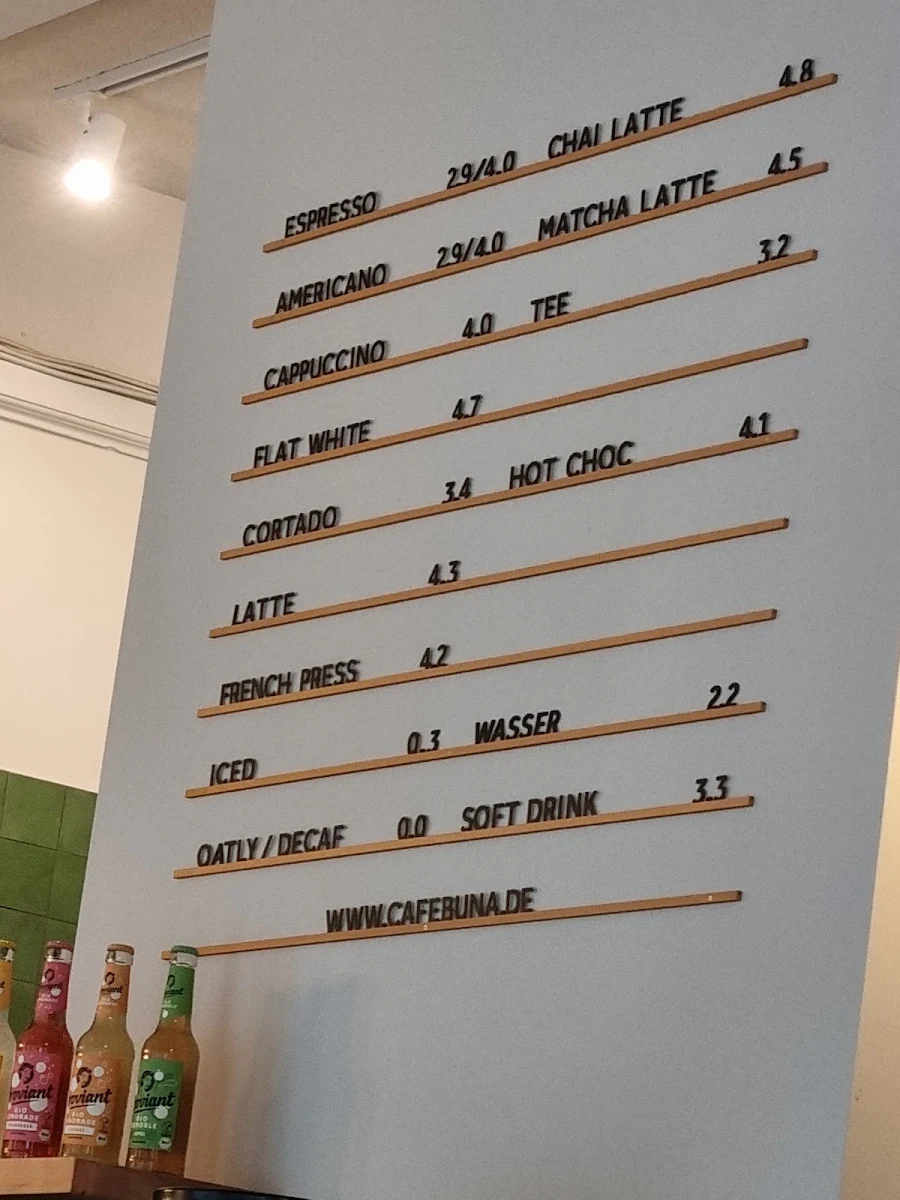 ESPRESSO 2.9/4.0 CHAI LATTE 4.8
AMERICANO 2.9/4.0 MATCHA LATTE 4.5
CAPPUCCINO 4.0 TEE 3.2
FLAT WHITE 4.7
CORTADO 3.4 HOT CHOC 4.1
LATTE 4.3
FRENCH PRESS 4.2
ICED 0.3 WASSER 2.2
OATLY / DECAF 0.0 SOFT DRINK 3.3
WWW.CAFEBUNA.DE